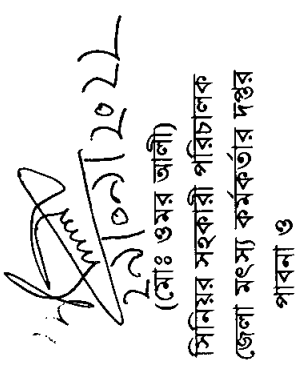 (মোঃ ওমর আলী)
সিনিয়র সহকারী পরিচালক
জেলা মৎস্য কর্মকর্তার দপ্তর
পাবনা ও